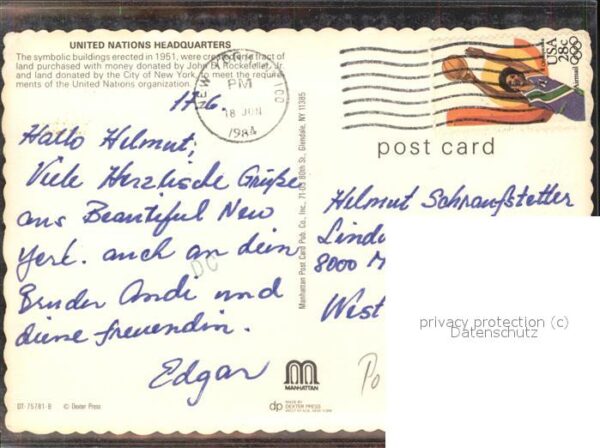 UNITED NATIONS HEADQUARTERS
The symbolic buildings erected in 1951, were created on a tract of
land purchased with money donated by John D. Rockefeller, Jr.
and land donated by the City of New York, to meet the require-
ments of the United Nations organization.
17.6.
Hallo Helmut,
Viele Herzlische Grüße
aus Beautiful New
York. auch an dein
Bruder Andi und
diene freuendin.
Edgar
DC
NEW YORK
PM
18 JUN
1984
100
USA
28c
Airmail
post card
Helmut Schraußstetter
Lind
8000 M
West
privacy protection (c)
Datenschutz
Po
Manhattan Post Card Pub. Co., Inc., 71-05 80th St., Glendale, NY 11385
MANHATTAN
DT-75781-B © Dexter Press
dp MADE BY
DEXTER PRESS
WEST NYACK, NEW YORK